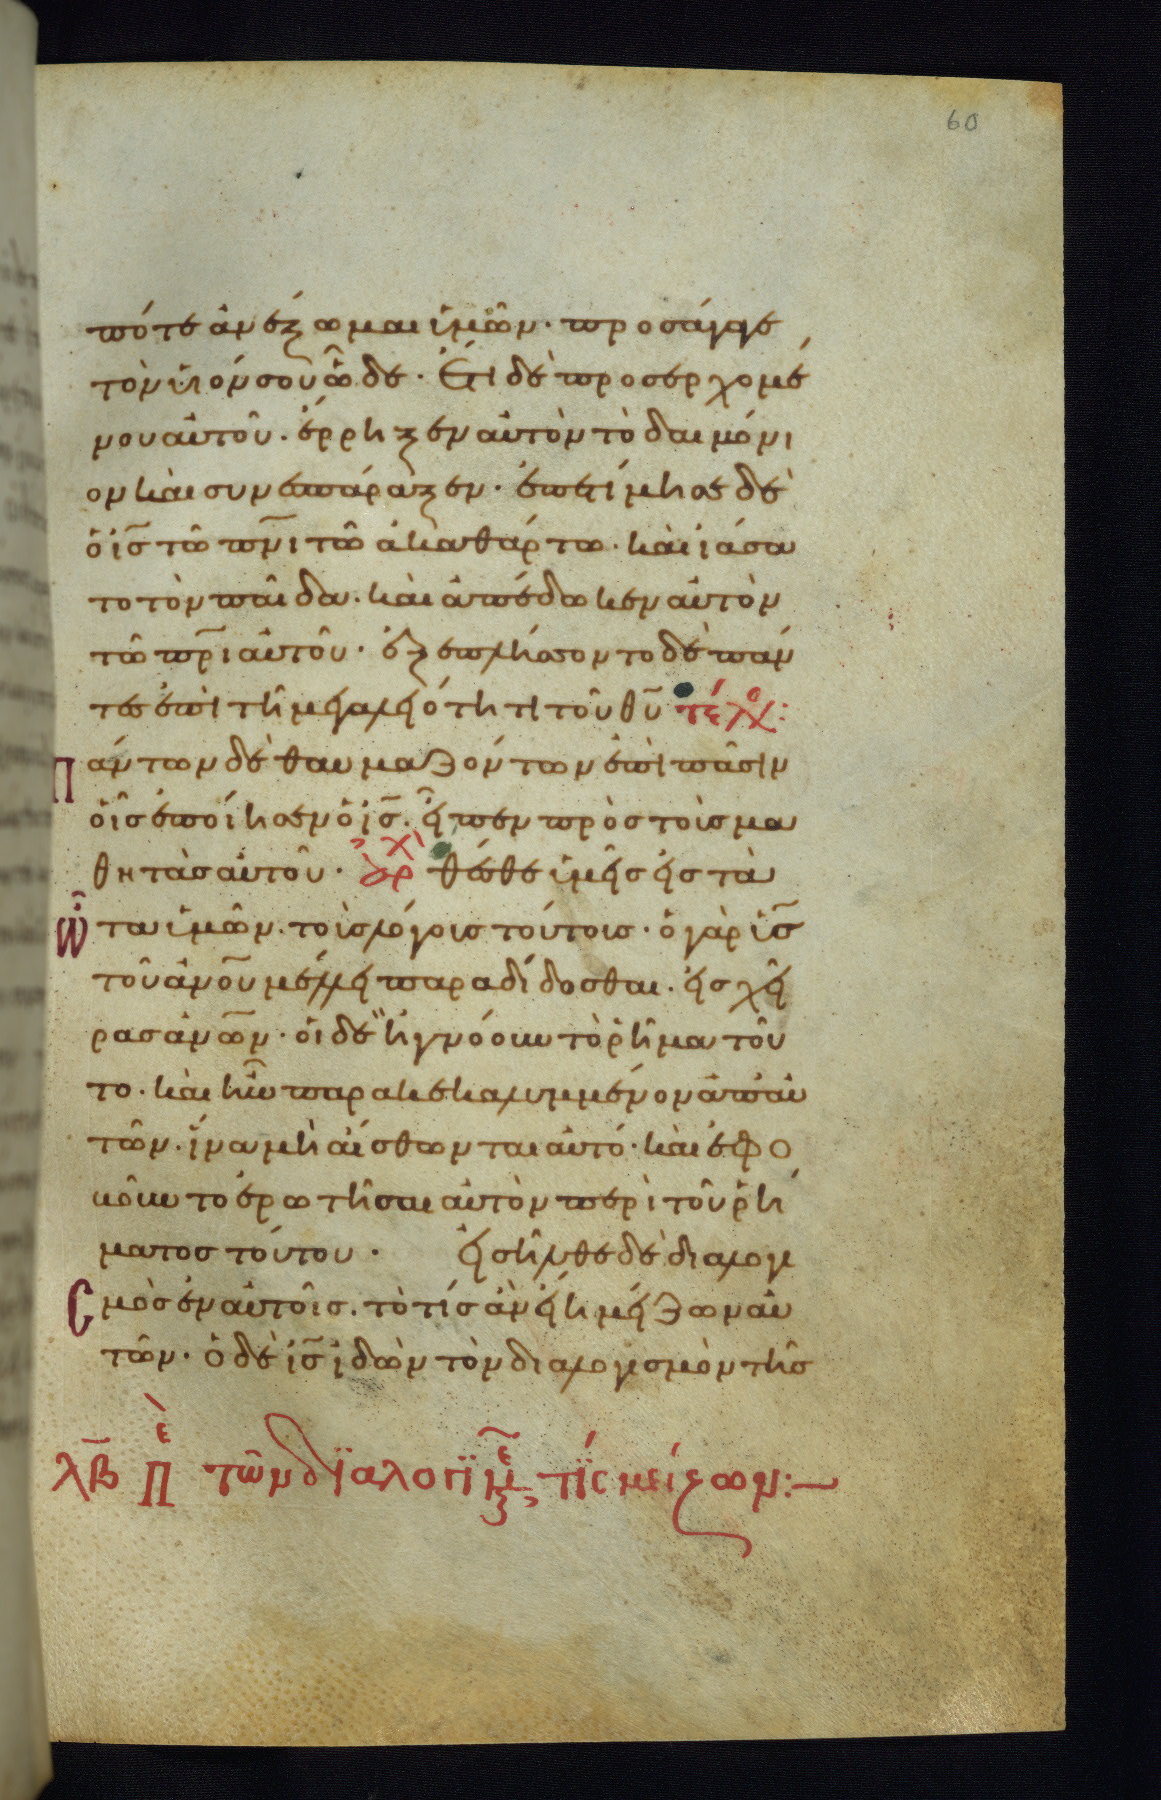 60
πότε ἀνέξωμαι ἱμῶν· προσάγαγε
τὸν ϊιόν σου ὧδε· Ἔτι δὲ προσερχομέ
νου αὐτοῦ· ἔρρηξεν αὐτὸν τὸ δαιμόνι
ον καὶ συνεσπάραξεν· ἐπετίμησε δὲ
ὁ ις̅ τῶ πν̅ι τῶ ἀκαθάρτω· καὶ ἰάσα
το τὸν παῖδα· καὶ ἀπέδωκεν αὐτὸν
τῶ πρ̅ι αὐτοῦ· ἐξεπλήσοντο δὲ πάν
τες ἐπὶ τῆ μεγαλειότητι τοῦ θυ̅ τέλο:
Πάντων δὲ θαυμαζόντων ἐπὶ πᾶσιν
οἷς ἐποίησεν ὁ ις̅· εἶπεν πρὸς τοὶς μα
θητὰς αὐτοῦ· ἀρχ θέσθε ἱμεῖς εἰς τὰ
ὦτα ἱμῶν· τοὶς λόγοις τούτοις· ὁ γὰρ ις̅
τοῦ ἀνο̅υ μέλλει παραδίδοσθαι· εἰς χεῖ
ρας ἀνω̅ν· οἱ δὲ ἠγνόουν τὸ ῥῆμα τοῦ
το· καὶ ἦν παρακεκαλυμμένον ἀπ' αὐ
τῶν· ἵνα μὴ αἴσθωνται αὐτό· καὶ ἐφο
βοῦντο ἐρωτῆσαι αὐτὸν περὶ τοῦ ῥή
ματος τούτου· εἰσῆλθε δὲ διαλογι
Σμὸς ἐν αὐτοῖς· τὸ τίς ἂν εἴη μείζων αὐ
τῶν· ὁ δὲ ις̅ ἰδὼν τὸν διαλογισμὸν τῆς
λβ̅ Πε τῶν δϊαλογϊζομε τίς μείζων:—